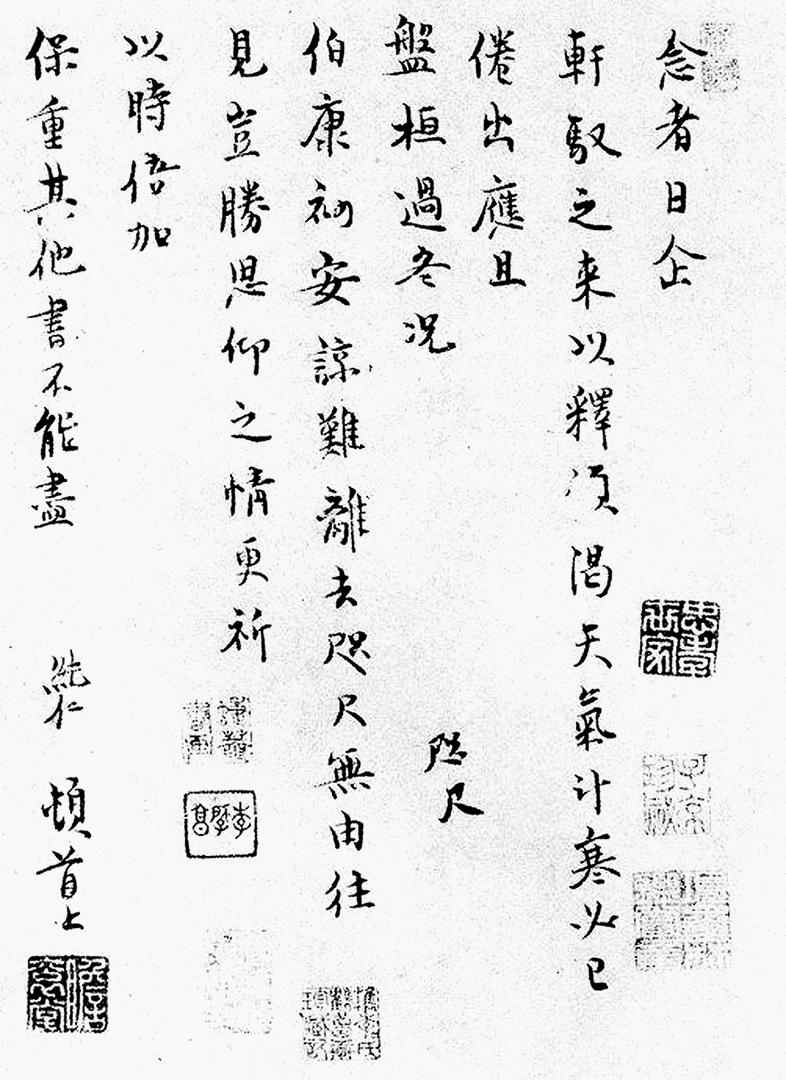 念者日企
軒馭之来以釋傾渴天氣計寒必已
倦出應且
盤桓過冬況
咫尺
伯康初安諒難離去咫尺無由往
見豈勝思仰之情更祈
以時倍加
保重其他書不能盡
純仁 頓首上